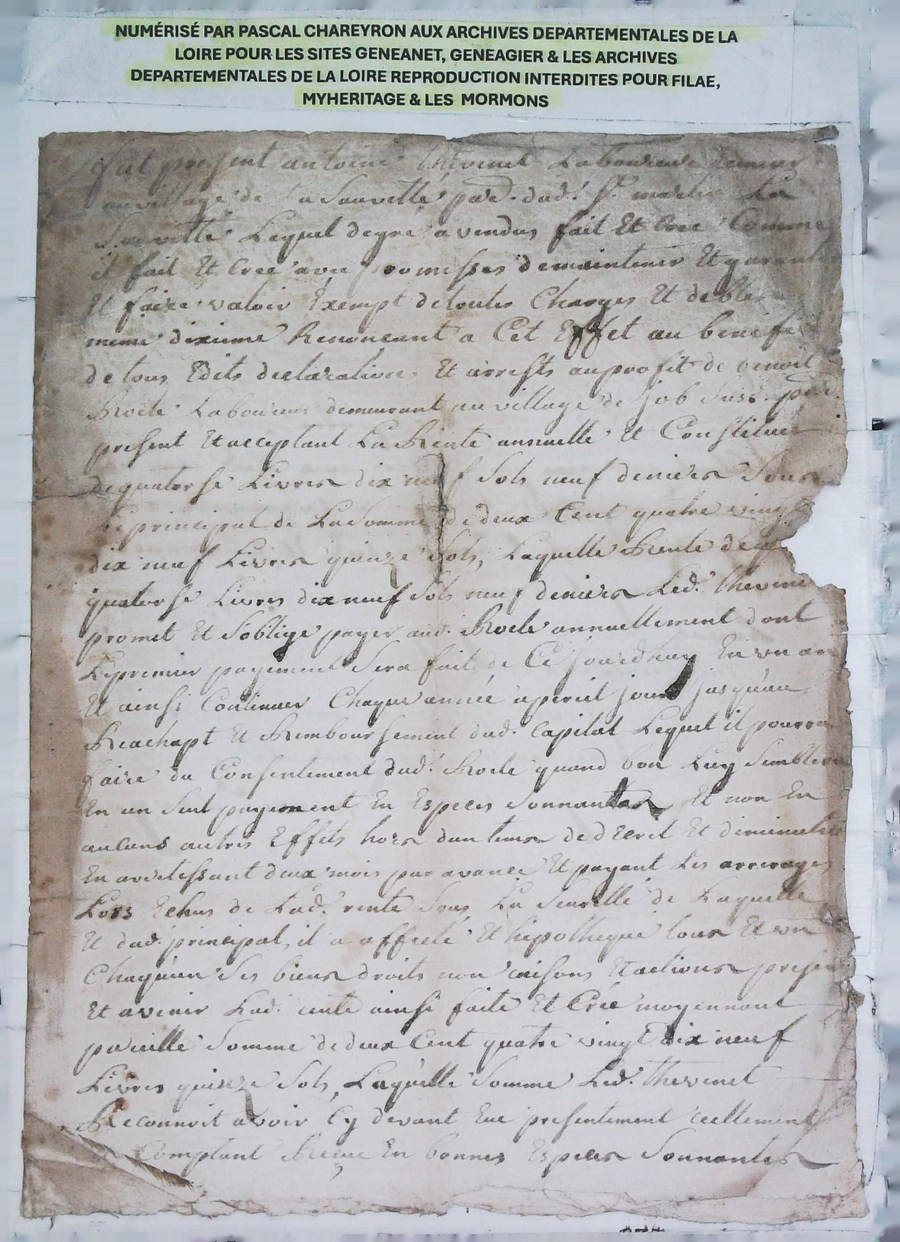 NUMÉRISÉ PAR PASCAL CHAREYRON AUX ARCHIVES DEPARTEMENTALES DE LA
LOIRE POUR LES SITES GENEANET, GENEAGIER & LES ARCHIVES
DEPARTEMENTALES DE LA LOIRE REPRODUCTION INTERDITES POUR FILAE,
MYHERITAGE & LES MORMONS
fut present antoine thevenet Laboureur
au village de La Sauvette par. dud. St. martin La
Sauvetté Lequel degré a vendus fait Et Créé Comme
il fait Et Créé avec promisses demaintenir Et garentir
Et faire valoir Exempt detoutes Charges Et de
meme dixieme Renonceant a Cet Effet au benefi
de tous Edits declarations Et arrests auprofit de benoit
Laboureur demeurant au village de
present Et acceptant La Rente annuelle Et Constituée
dequatorse Livres dix neuf Sols neuf deniers Sous
principal de La Somme de deux Cent quatre vingt
dix neuf Livres quinze Sols, Laquelle Rente de
quatorse Livres dix neuf Sols neuf deniers Led. thevenet
promet Et Soblige payer aud. annuellement dont
Lepremier payement Sera fait de Ce jourdhuy En un an
Et ainsi Continuer Chaque année apareil jour jusquau
Reachapt Et Remboursement dud. Capital Lequel il pourra
faire du Consentement dud. quand bon Luy Semblera
En un Seul payement En Especes Sonnantes Et non En
aucuns autres Effets hors dun tems de decret Et diminution
En avertissant deux mois par avance Et payant Les arrerages
Lors Echus de Lad. rente Sous La Seureté de Laquelle
Et dud. principal, il a affecté Et hipothequé tous Et un
Chaquun Ses biens droits nom raisons Et actions present
Et avenir Lad. rente ainsi faite Et Créé moyennant
pareille Somme de deux Cent quatre vingt dix neuf
Livres quinze Sols, Laquelle Somme Led. thevenet
Reconnoit avoir Cy devant Eue presentement reellement
Comptant Reçue En bonnes Especes Sonnantes